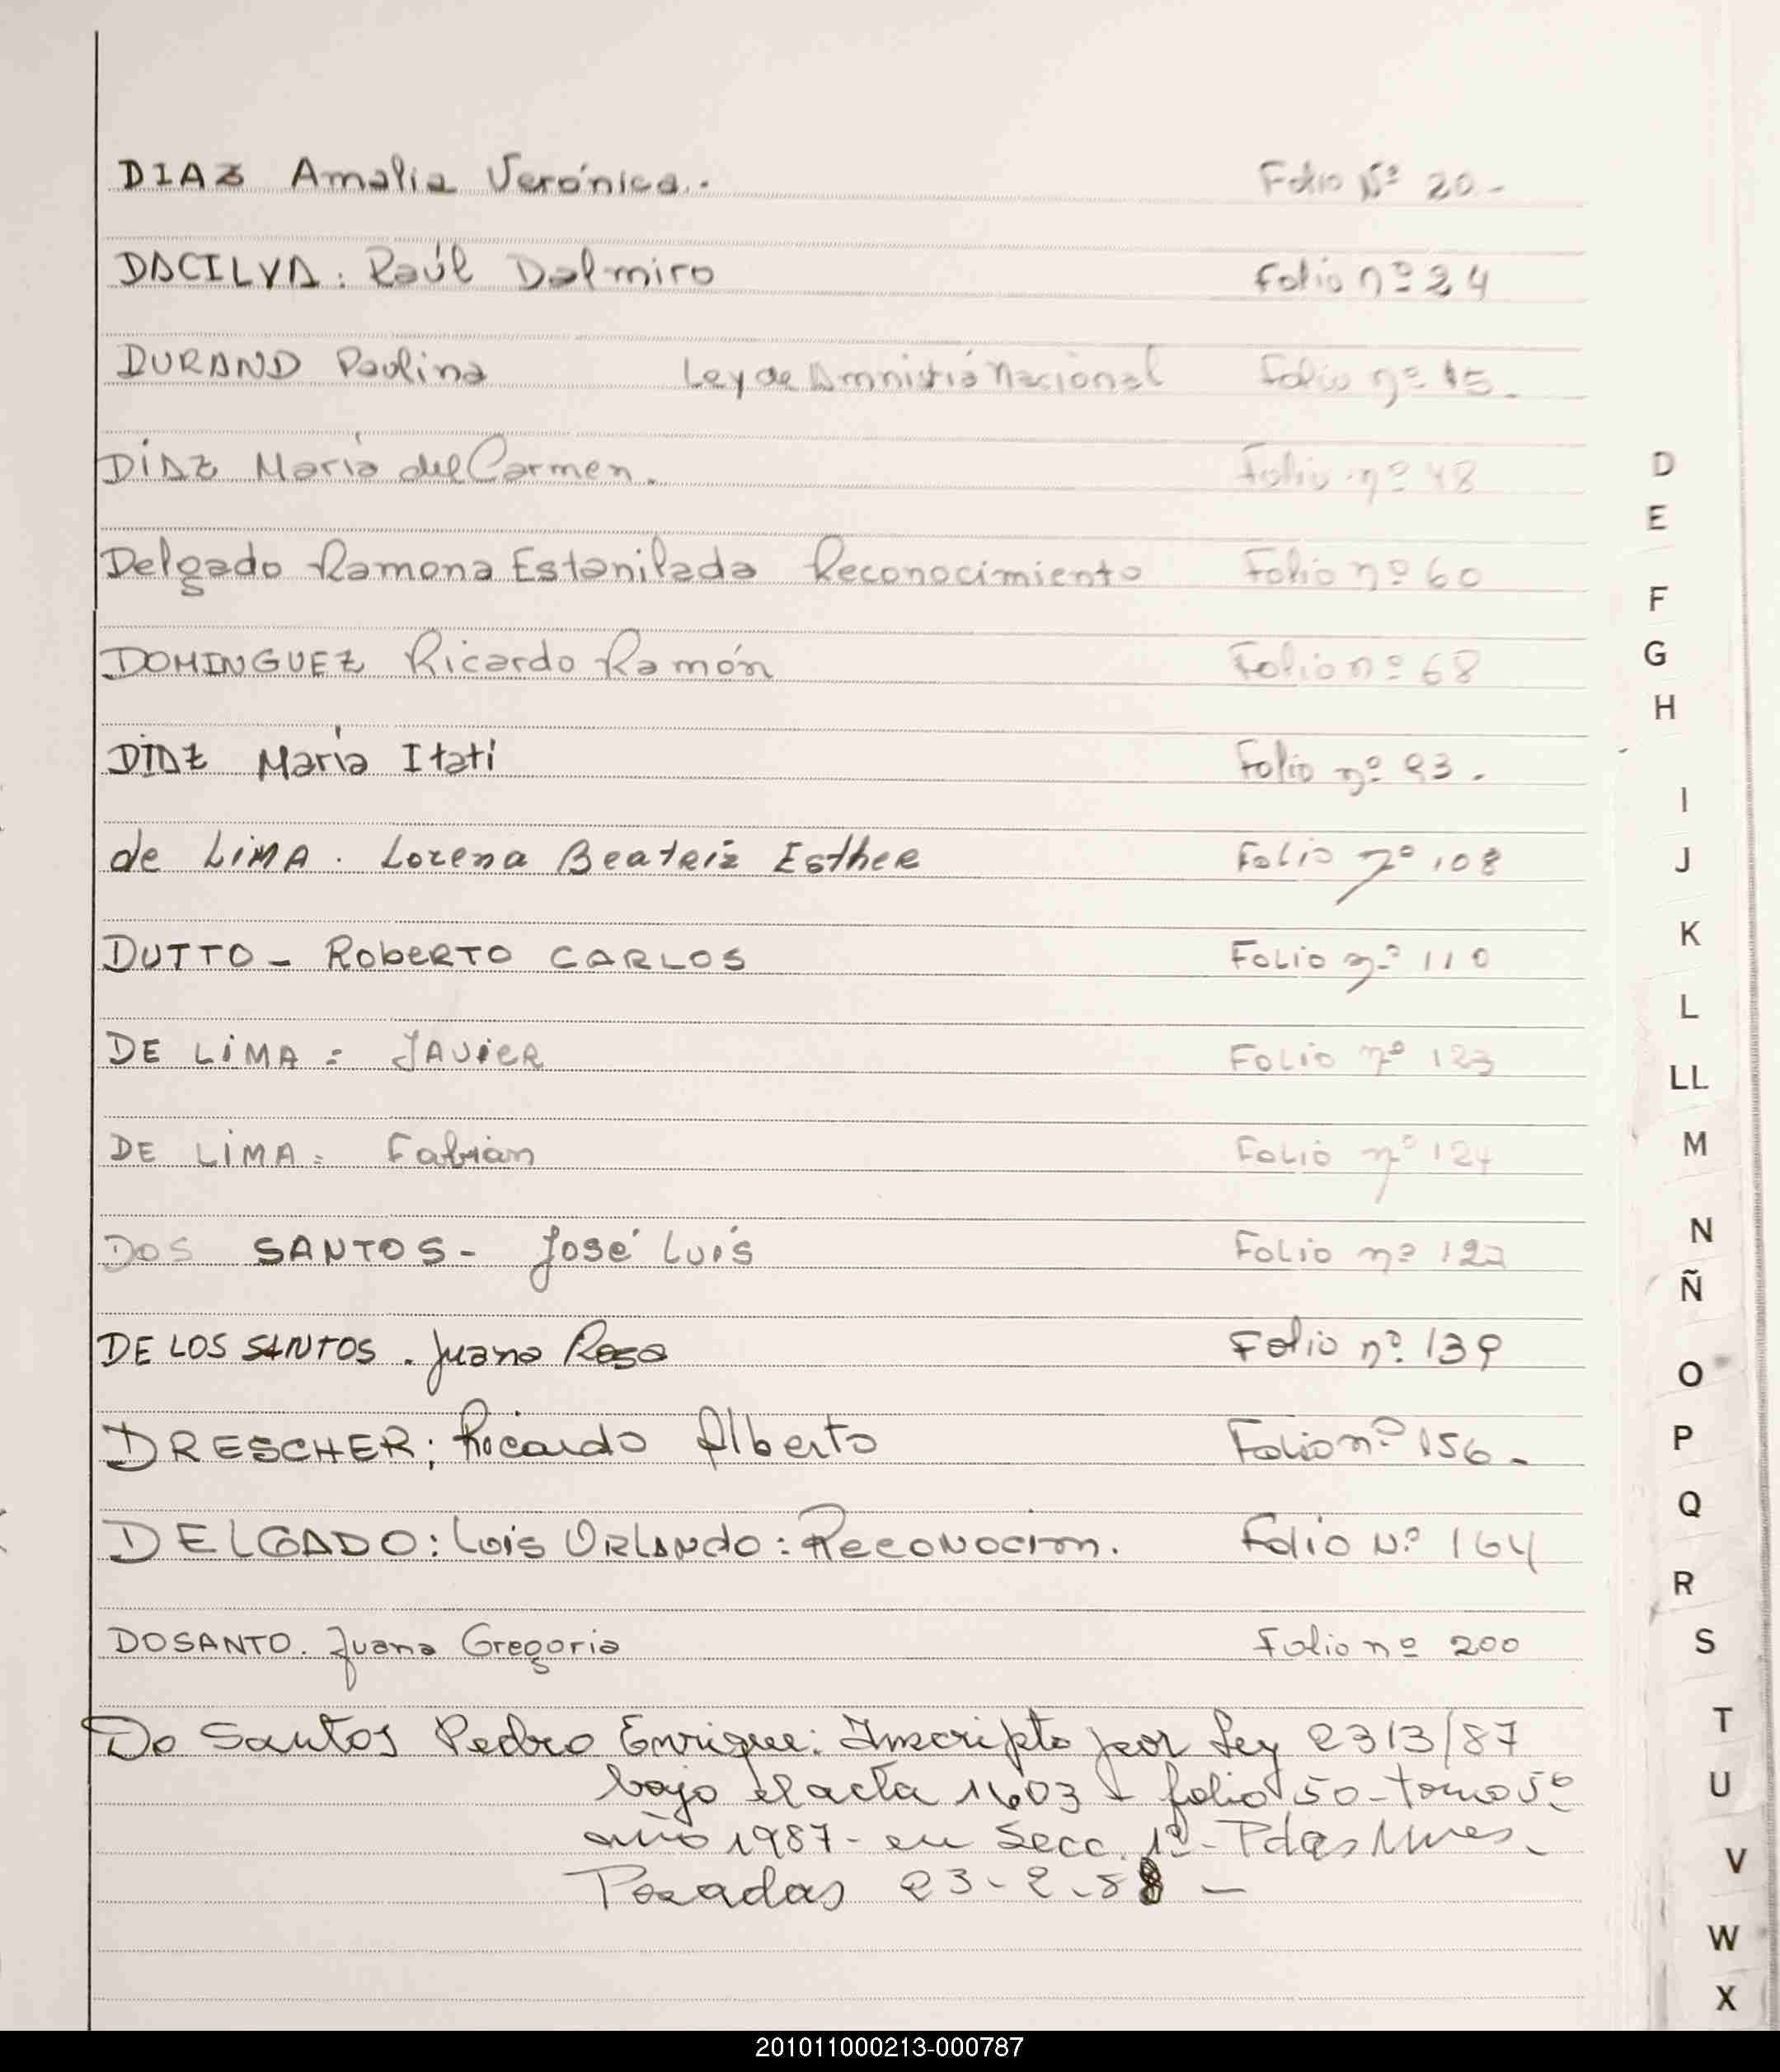 DIAZ Amalia Verónica. Folio Nº 20.-
DACILVA: Raúl Dalmiro Folio nº 24
DURAND Paulina Ley de Amnistía Nacional Folio nº 15.
DÍAZ María del Carmen. Folio nº 48
Delgado Ramona Estanilada Reconocimiento Folio nº 60
DOMINGUEZ Ricardo Ramón Folio nº 68
DÍAZ María Itatí Folio nº 93.
de LiMA. Lorena Beatriz Esther Folio nº 108
DUTTO - Roberto CARLOS Folio nº 110
DE LiMA = JAVieR Folio nº 123
DE LiMA = Fabián Folio nº 124
DOS SANTOS - José Luís Folio nº
DE LOS SANTOS. Juana Rosa Folio nº 139
DRESCHER; Ricardo Alberto Folio nº 156-
DELGADO: Luis ORLANdo: RECONOCIm. Folio Nº 164
DOSANTO. Juana Gregoria Folio nº 200
Do Santos Pedro Enrique: Inscripto por Ley 2313/87
bajo el acta 1603 - folio 50 - tomo 5º
año 1987 - en Secc. 1ª - Pdas Mnes.
Posadas 23-2-88 -
D
E
F
G
H
I
J
K
L
LL
M
N
Ñ
O
P
Q
R
S
T
U
V
W
X
201011000213-000787